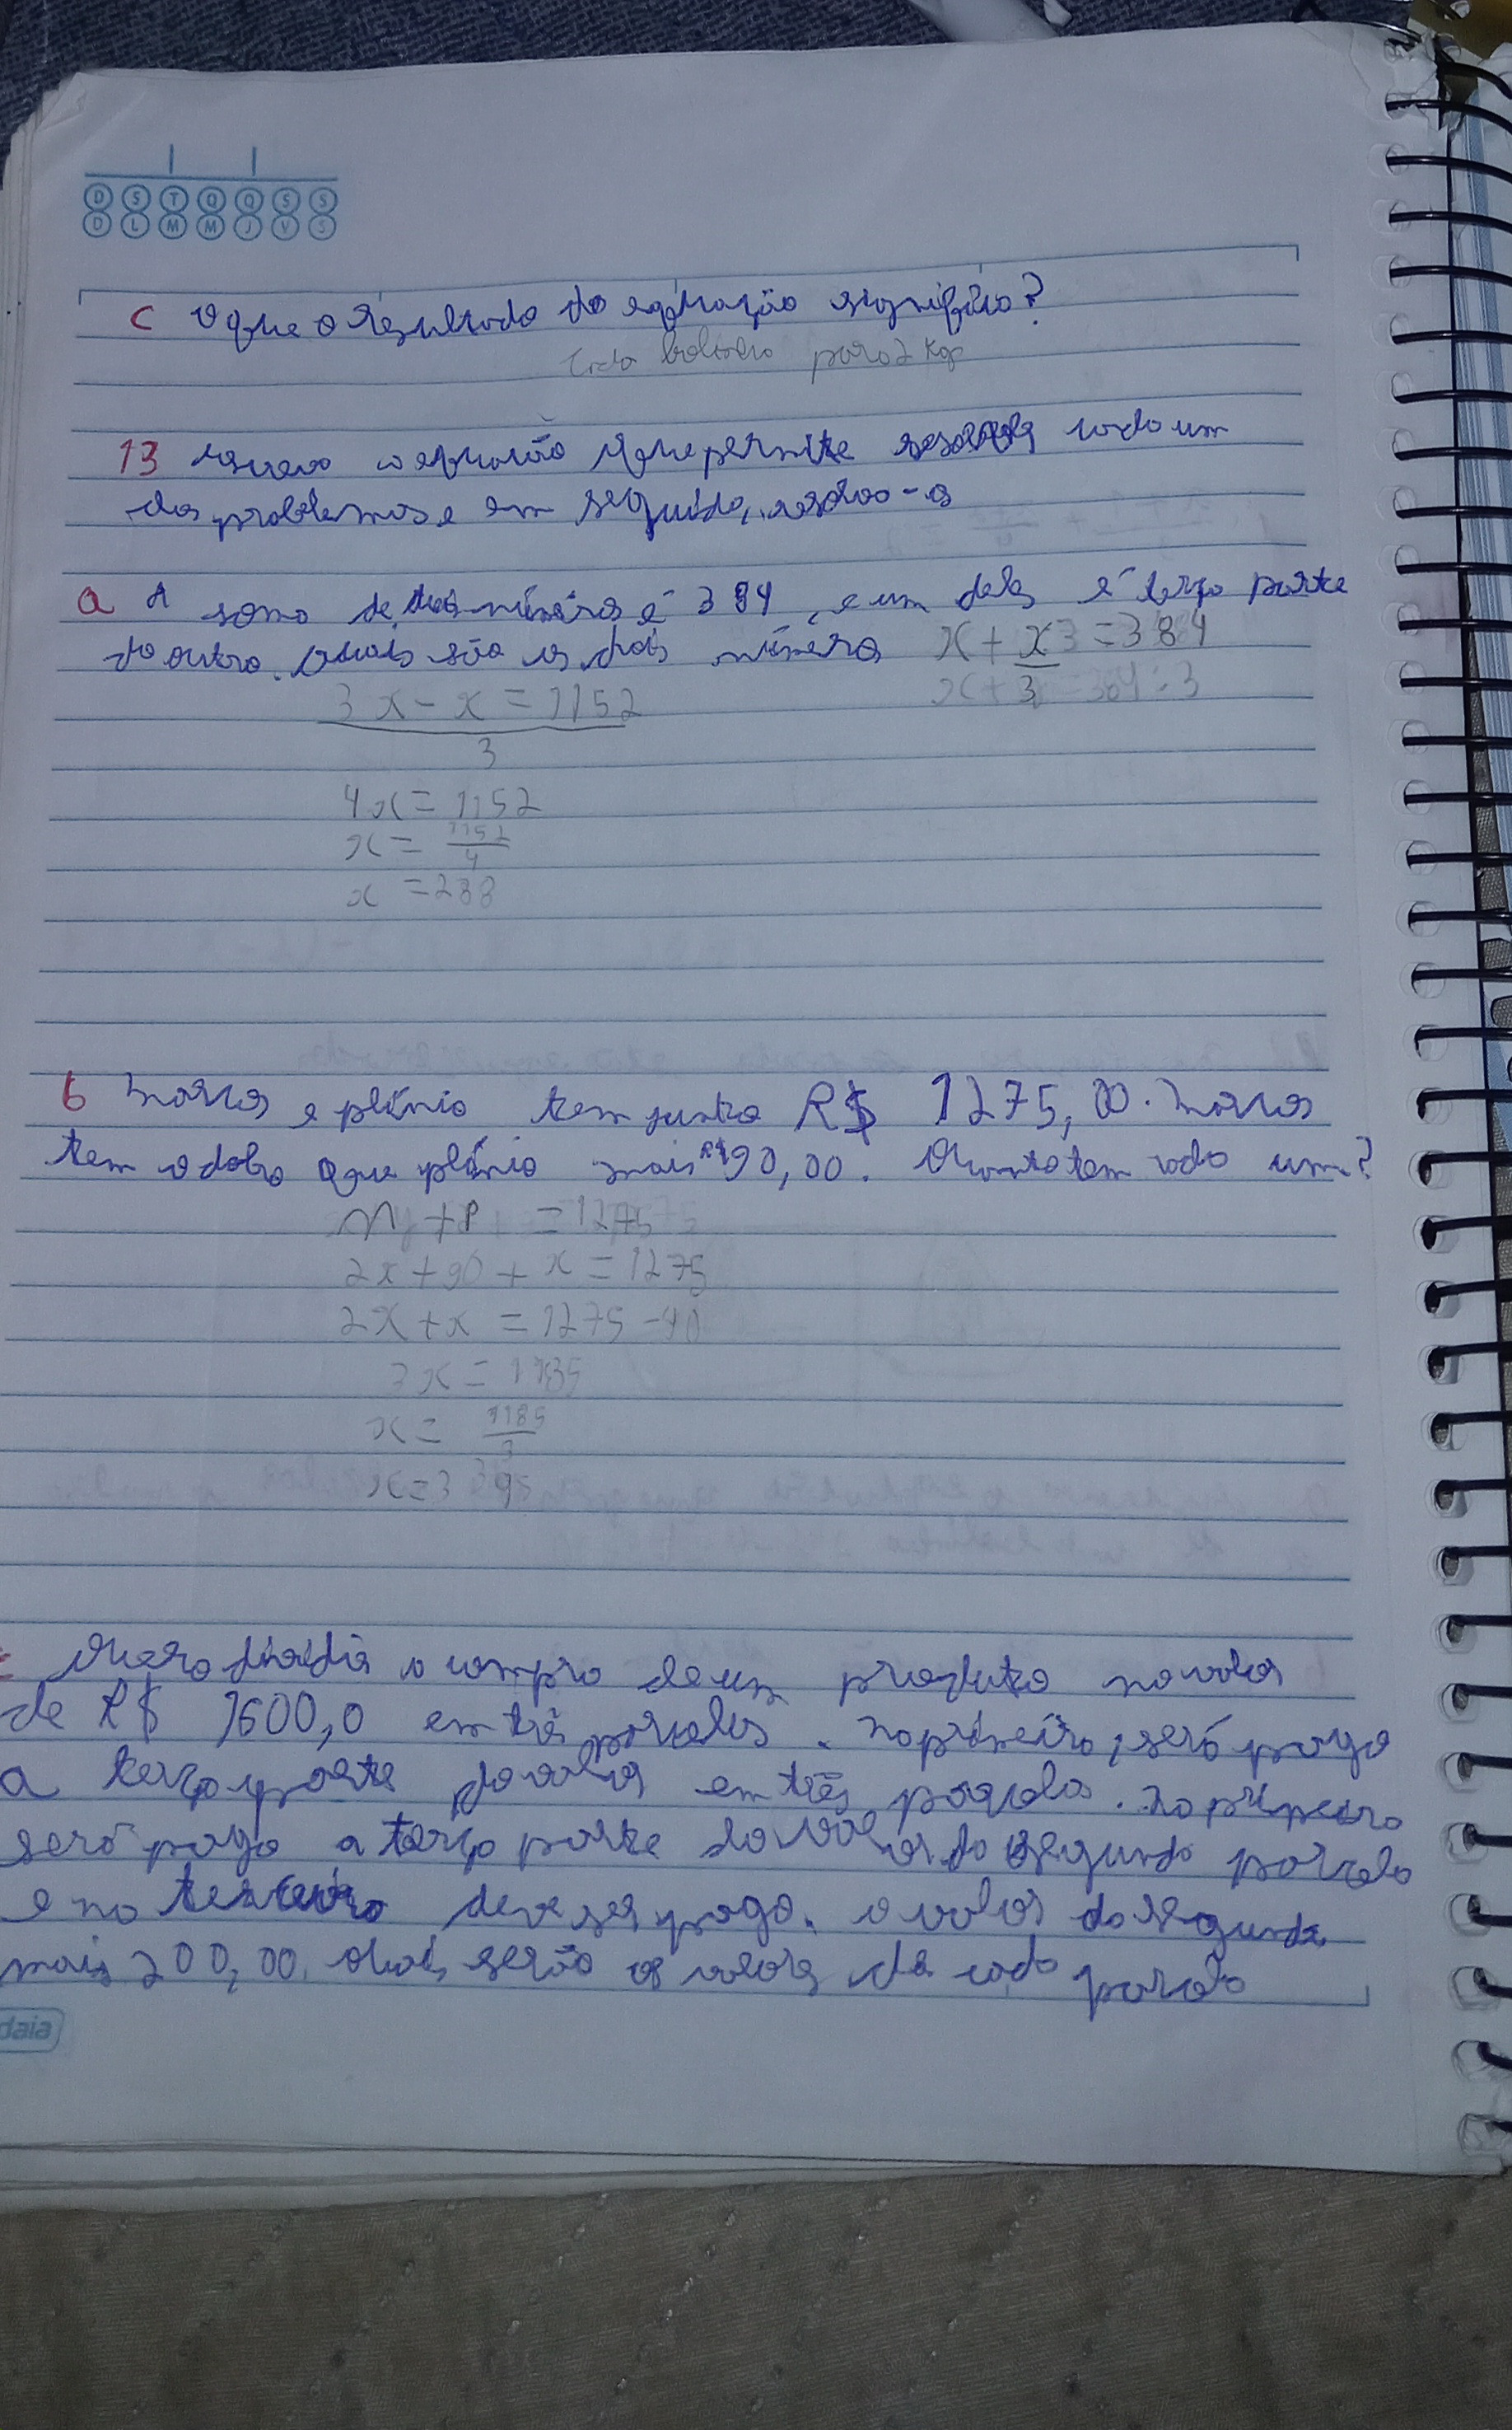 D S T Q Q S S
D L M M J V S
c O que o resultado da equação significa?
Cada bolinha para 2 Kg
13 escreva a equação que permite resolver cada um
dos problemas e em seguida, resolva-os
a A soma de dois números é 384, e um deles é terça parte
do outro. Quais são os dois número x + x3 = 384
3x - x = 1152 x + 3 = 384 : 3
3
4x = 1152
x = 1152
4
x = 288
b Marcos e plínio tem juntos R$ 1275,00. Marcos
tem o dobro que plínio mais R$ 90,00. Quanto tem cada um?
M + P = 1275
2x + 90 + x = 1275
2x + x = 1275 - 90
3x = 1185
x = 1185
3
x = 395
a compra de um produto no valor
de R$ 1600,0 em três parcelas. na primeira, será paga
a terça parte do valor em três parcela. na primeira
será paga a terça parte do valor da segunda parcela
e na terceira deve ser pago. o valor da segunda
mais 200,00. Quais serão os valores de cada parcela
daia